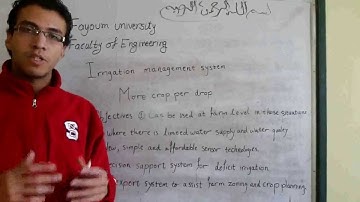 Fayoum university
Faculty of Engineering
Irrigation management system
More crop per drop
objectives ① Can be used at farm level in those situations
where there is limited water supply and water quality
New, simple and affordable sensor technologies.
support system for deficit irrigation
expert system to assist farm zoning and crop planning